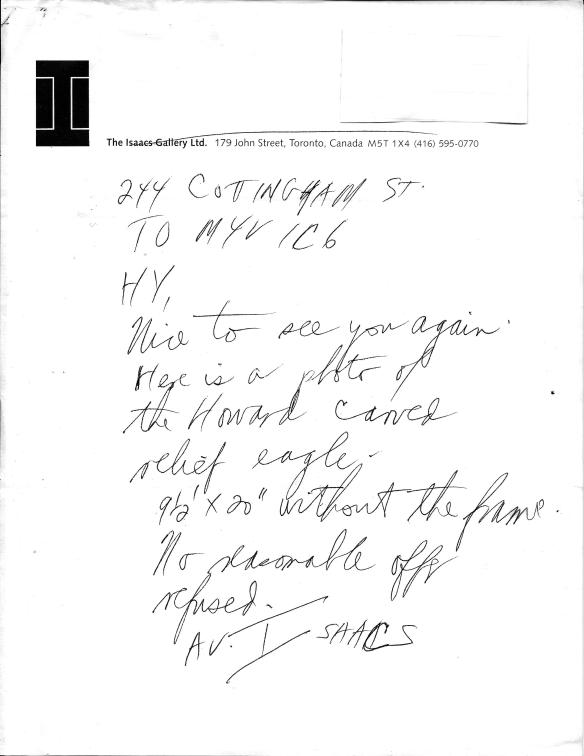 The Isaacs Gallery Ltd. 179 John Street, Toronto, Canada M5T 1X4 (416) 595-0770
244 COTTINGHAM ST.
TO M4V 1C6
HY,
Nice to see you again.
Here is a photo of
the Howard carved
relief eagle.
9½" X 20" without the frame.
No reasonable offer
refused.
AV. ISAACS